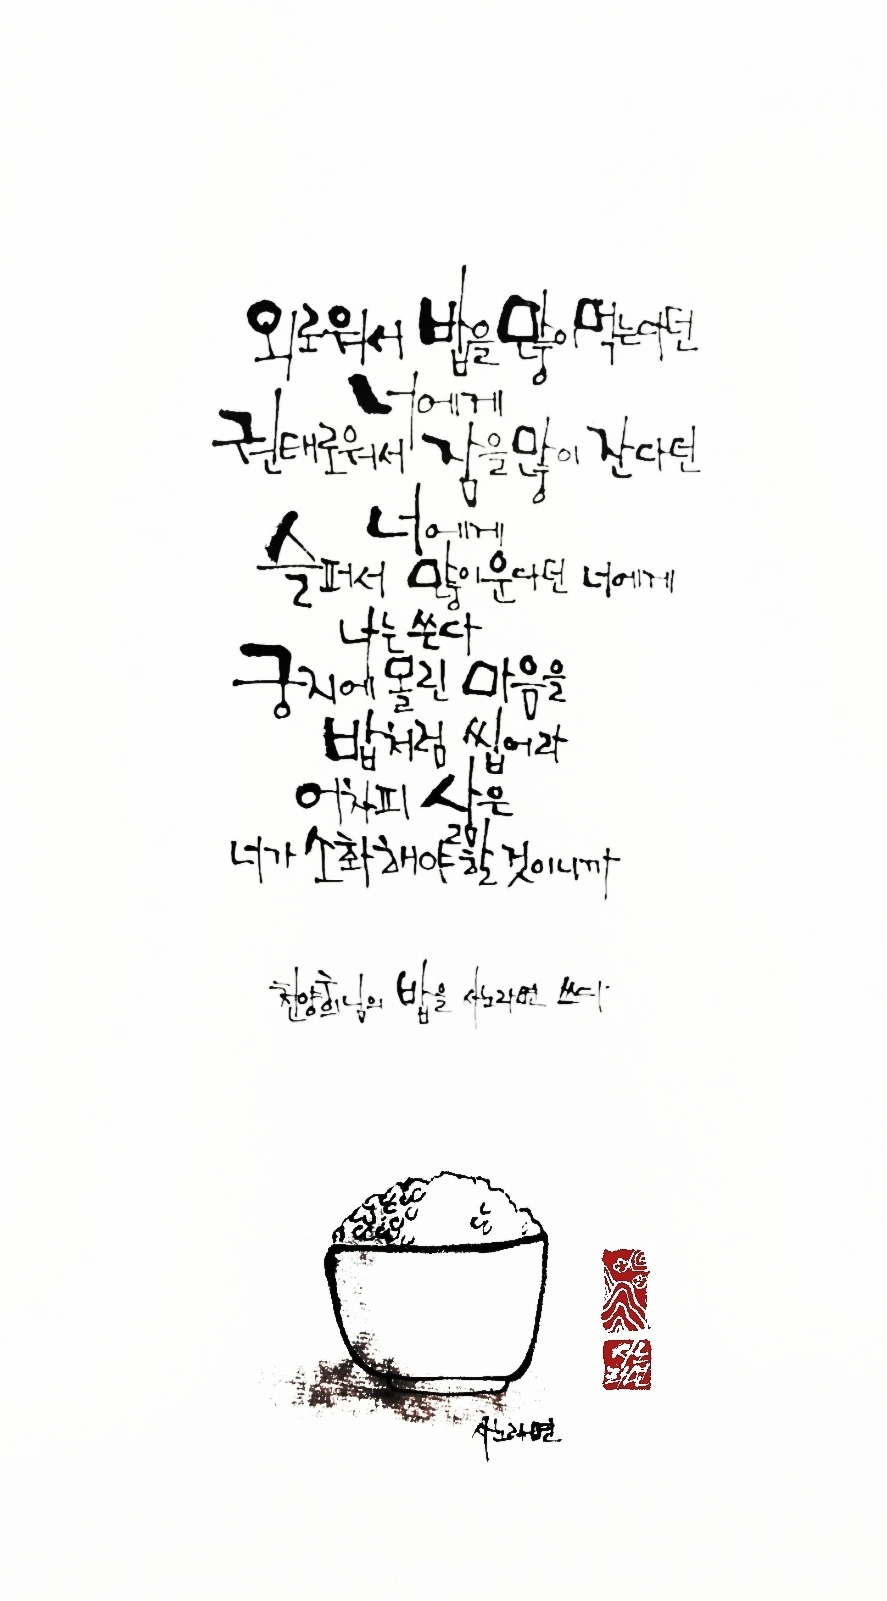 외로워서 밥을 많이 먹는다던
너에게
권태로워서 잠을 많이 잔다던
너에게
슬퍼서 많이 운다던 너에게
나는 쓴다
궁지에 몰린 마음을
밥처럼 씹어라
어차피 삶은
너가 소화해야 할 것이니까
천양희님의 밥을 사노라면 쓰다
사노라면
사노
라면